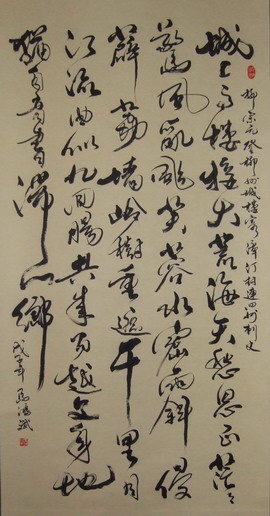 柳宗元登柳州城樓寄漳汀封連四州刺史
城上高樓接大荒海天愁思正茫〻
驚風亂颭芙蓉水密雨斜侵
薜荔墻嶺樹重遮千里目
江流曲似九回腸共來百越文身地
猶自音書滯一鄉
戊子年